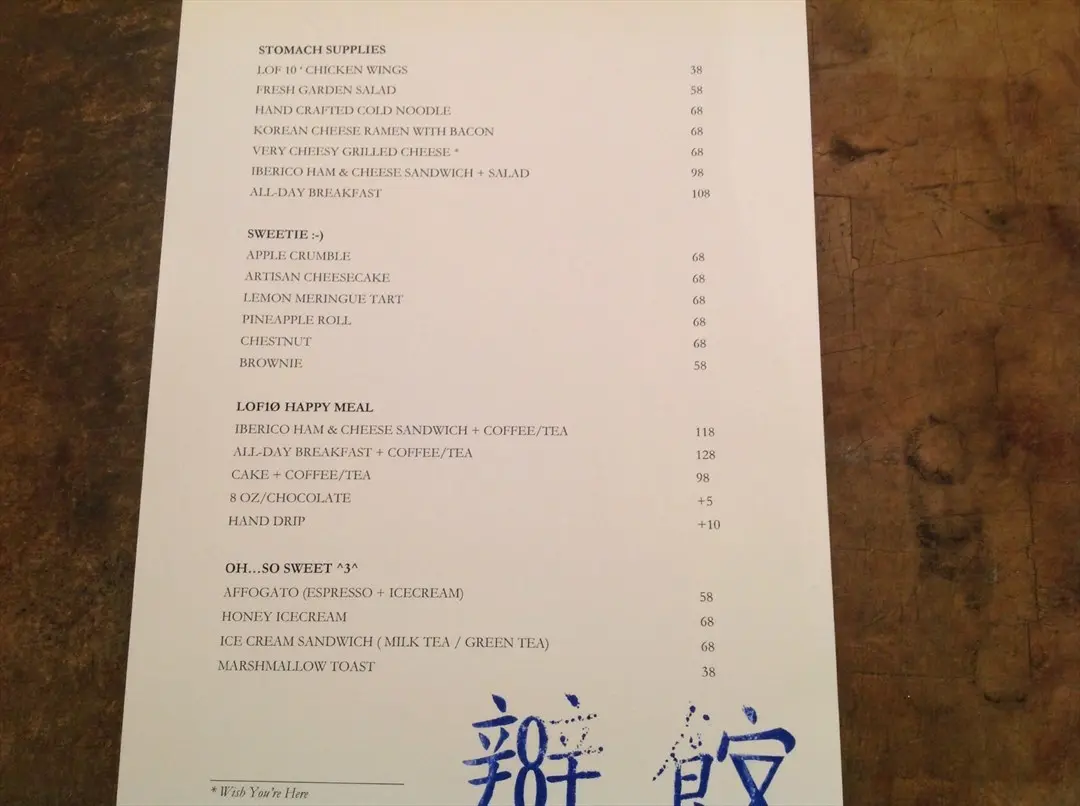 STOMACH SUPPLIES
LOF 10 ' CHICKEN WINGS 38
FRESH GARDEN SALAD 58
HAND CRAFTED COLD NOODLE 68
KOREAN CHEESE RAMEN WITH BACON 68
VERY CHEESY GRILLED CHEESE * 68
IBERICO HAM & CHEESE SANDWICH + SALAD 98
ALL-DAY BREAKFAST 108
SWEETIE :-)
APPLE CRUMBLE 68
ARTISAN CHEESECAKE 68
LEMON MERINGUE TART 68
PINEAPPLE ROLL 68
CHESTNUT 68
BROWNIE 58
LOF1Ø HAPPY MEAL
IBERICO HAM & CHEESE SANDWICH + COFFEE/TEA 118
ALL-DAY BREAKFAST + COFFEE/TEA 128
CAKE + COFFEE/TEA 98
8 OZ/CHOCOLATE +5
HAND DRIP +10
OH...SO SWEET ^3^
AFFOGATO (ESPRESSO + ICECREAM) 58
HONEY ICECREAM 68
ICE CREAM SANDWICH ( MILK TEA / GREEN TEA) 68
MARSHMALLOW TOAST 38
* Wish You're Here